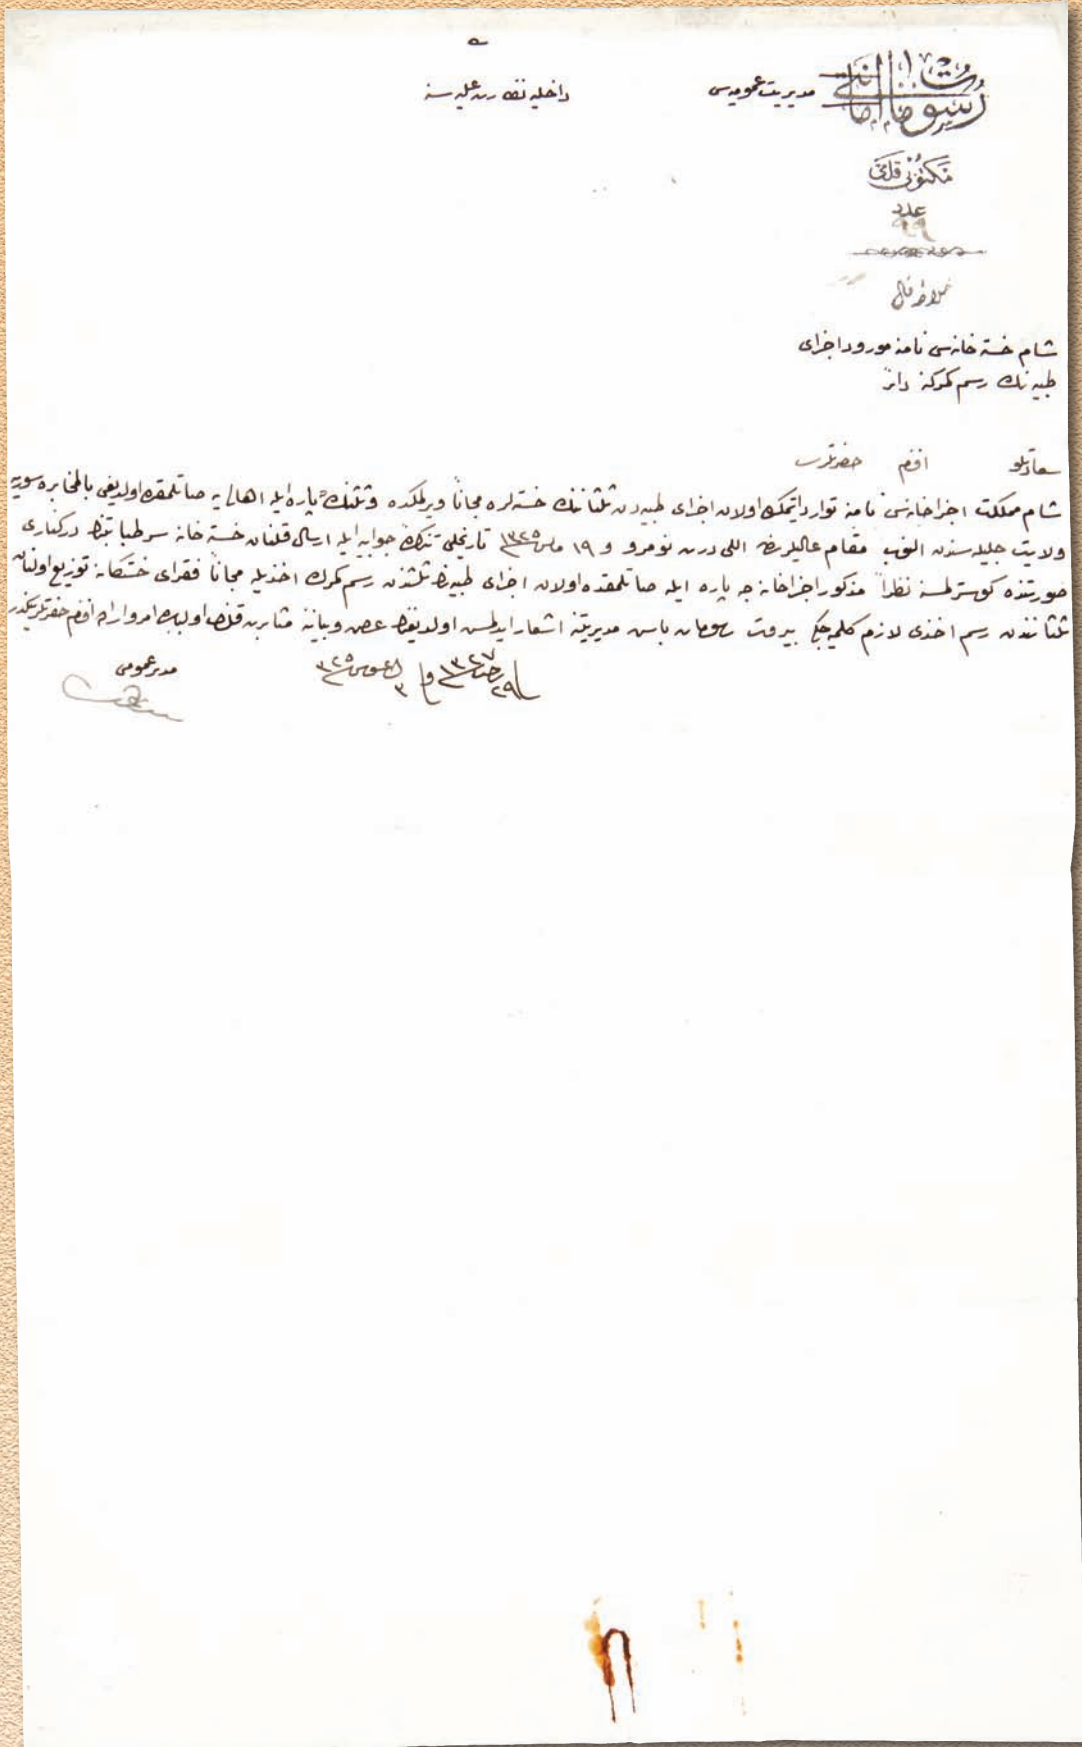 رسومات امانتی
مدیریت عمومیه‌سی
داخلیه نظارت علیه‌سنه
مکتوبی قلمی
عدد
٩٩
شام خسته‌خانه‌سی نامنه مورود اجزای
طبیه‌نك رسم كمركنه دائر
سعادتلو افندم حضرتلری
شام مملكت اجزاخانه‌سی نامنه توارد ایتمكده اولان اجزای طبیه‌دن ثلثاننك خسته‌لره مجاناً ویرلمكده و ثلثنك پاره ایله اهالی‌یه صاتلمقده اولدیغی بالمخابره سوریه
ولایت جلیله‌سندن الینوب مقام عالیلرینك اللی درت نومرو و ١٩ مارس ٣٢٥ تاریخلی تذكره جوابیه ایله ارسال قلنان خسته‌خانه سرطبابتنك دركناری
صورتنده كوسترلمسنه نظراً مذكور اجزاخانه‌جه پاره ایله صاتلمقده اولان اجزای طبیه‌نك ثلثندن رسم كمرك اخذیله مجاناً فقرای خستكانه توزیع اولنان
ثلثانندن رسم اخذی لازم كلمیه‌جكی بیروت رسومات باش مدیریتنه اشعار ایدلمش اولدیغنك عرض وبیاننه مثابرت قلندی اولبابده امر واراده افندم حضرتلرینكدر
٢٩ رجب ١٣٢٧ و ٣ اغستوس ٣٢٥
مدیر عمومی